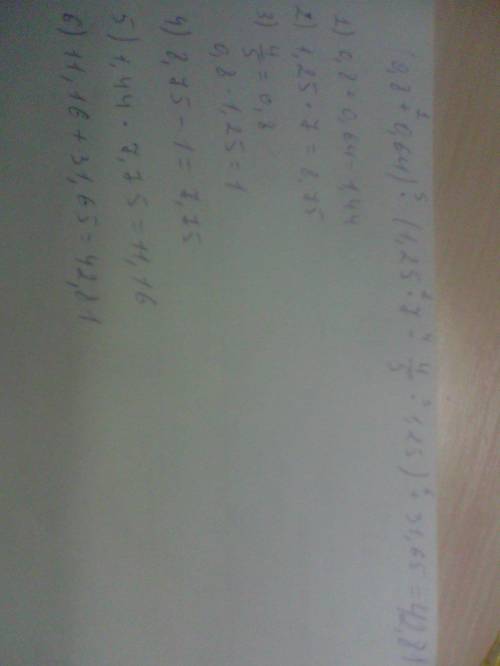 (0,8+0,64)·(1,25·7-4/5·1,25)+31,65=42,81
1) 0,8+0,64=1,44
2) 1,25·7=8,75
3) 4/5=0,8
0,8·1,25=1
4) 8,75-1=7,75
5) 1,44·7,75=11,16
6) 11,16+31,65=42,81